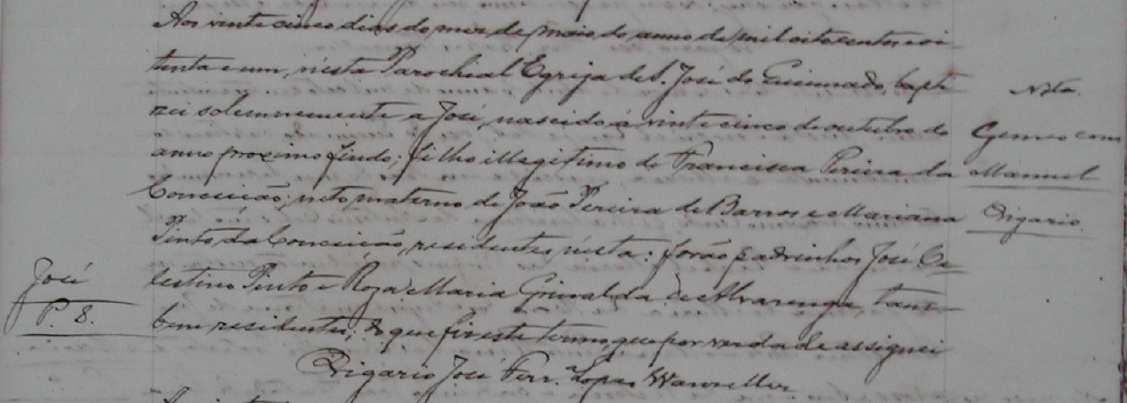 Aos vinte cinco dias do mez de maio do anno de mil oitocentos e oi-
tenta e um, n'esta Parochial Egreja de S. José do Queimado, bapti-
zei solemnemente a José, nascido a vinte cinco de outubro do
anno proximo findo; filho illegitimo de Francisca Pereira da
Conceicão, neto materno de João Pereira de Barros e Marianna
Pinto da Conceicão, residentes n'esta: forão padrinhos José Ce-
lestino Pinto e Roza Maria Grinalda de Alvarenga, tam-
bem residentes; do que fiz este termo, que por verdade assignei
Vigario José Ferr.ª Lopes
José
P. 8.
Nota.
Gemeo com
Manuel
Vigario.